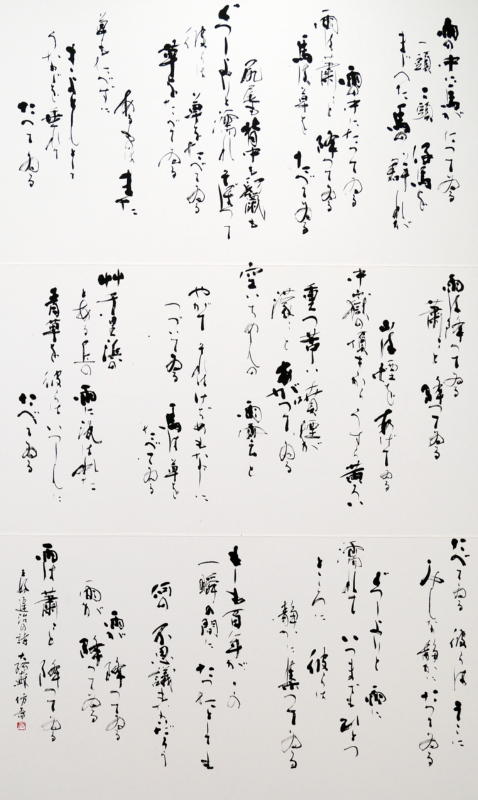 雨の中に馬がたつてゐる
一頭二頭仔馬を
まじへた馬の群れが
雨の中にたつてゐる
雨は蕭々と降つてゐる
馬は草をたべてゐる
尻尾も背中も鬣も
ぐつしよりと濡れそぼつて
彼らは草をたべてゐる
草をたべてゐる
あるものはまた
草もたべずに
きよとんとして
うなじを垂れて
たつてゐる
雨は降つてゐる
蕭々と降つてゐる
山は煙をあげてゐる
中嶽の頂きからうすら黄ろい
重つ苦しい噴煙が
濛々とあがつてゐる
空いちめんの雨雲と
やがてそれはけぢめもなしに
つづいてゐる
馬は草を
たべてゐる
艸千里浜の
とある丘の雨に洗はれた
青草を彼らはいつしんに
たべてゐる
たべてゐる彼らはそこに
みんな静かにたつてゐる
ぐつしよりと雨に
濡れていつまでもひとつ
ところに彼らは
静かに集つてゐる
もしも百年がこの
一瞬の間にたつたとしても
何の不思議もないだらう
雨が降つてゐる
雨が降つてゐる
雨は蕭々と降つてゐる
三好達治の詩 大阿蘇